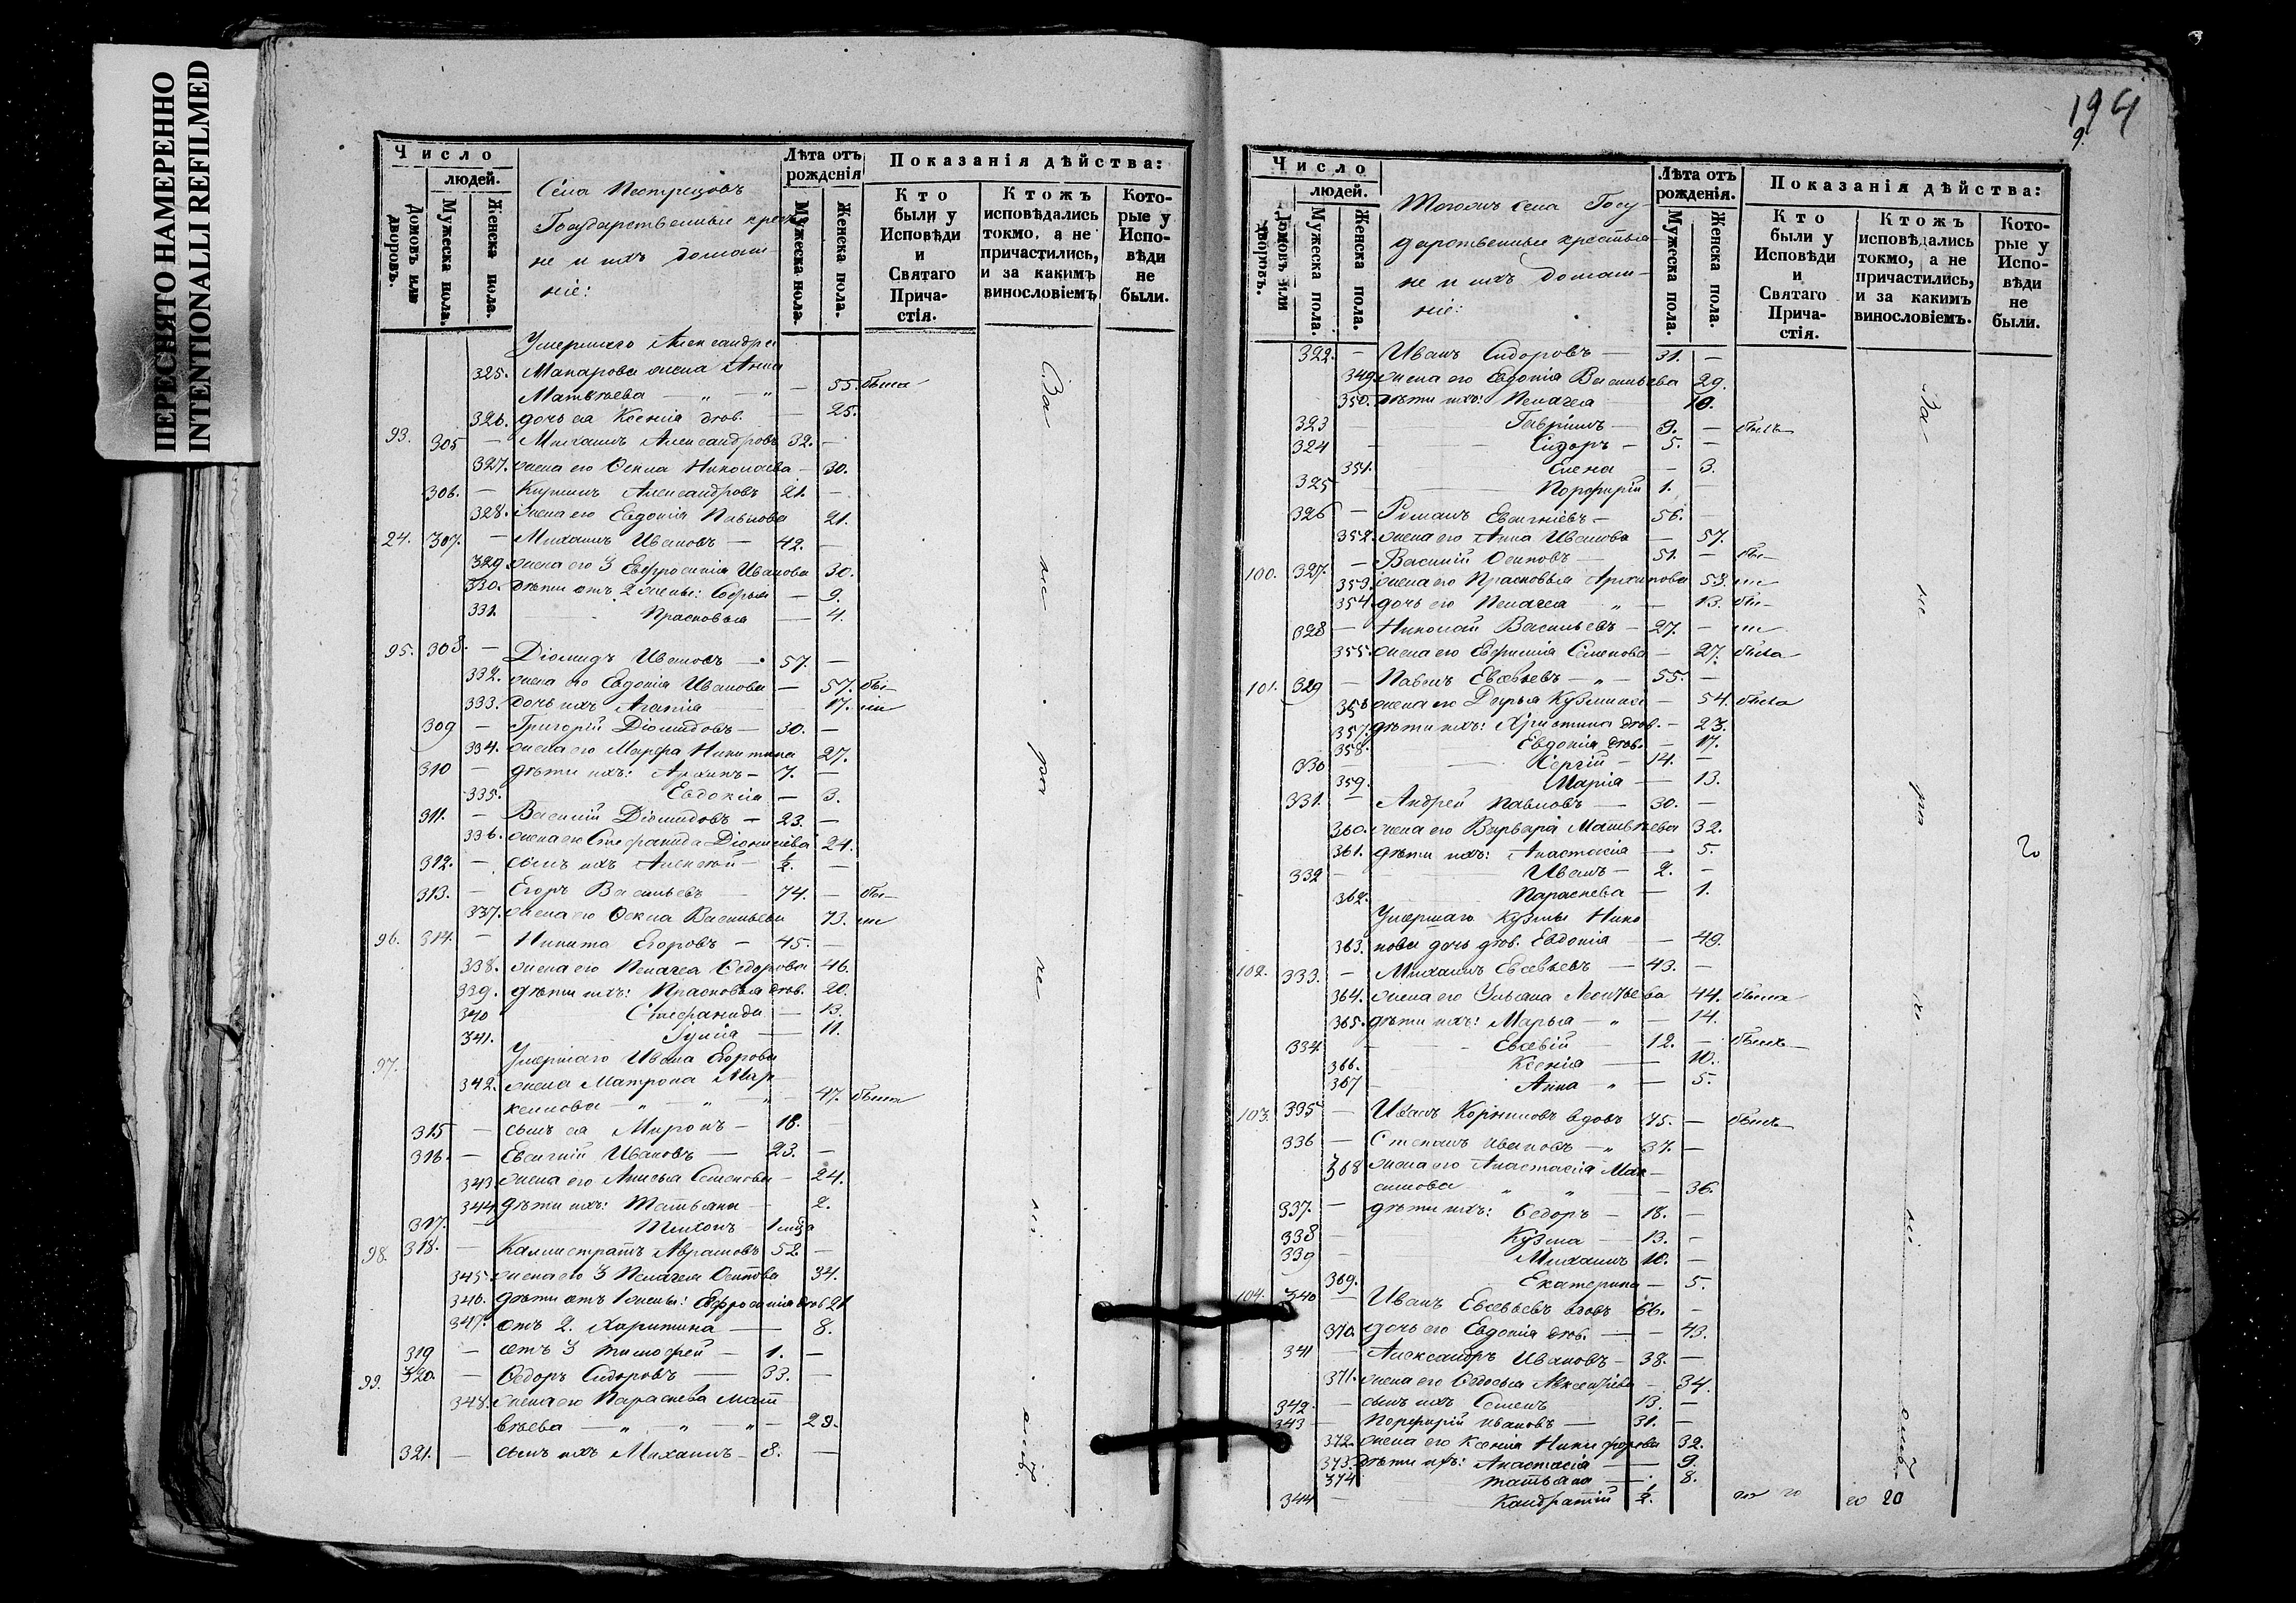 ПЕРЕСНЯТО НАМЕРЕННО
INTENTIONALLI REFILMED
194
9.
Число
людей.
Домовъ или дворовъ.
Мужеска пола.
Женска пола.
Села Пестрецовъ
Государственные кресть
не и ихъ домаш-
ніе:
Лѣта отъ рожденія
Мужеска пола.
Женска пола.
Показанія дѣйства:
Кто были у Исповѣди и Святаго Прича-стія.
Ктожъ исповѣдались токмо, а не причастились, и за какимъ винословіемъ
Кото-рые у Испо-вѣди не были.
Умершаго Александра
325. Макарова жена Анна
Матвѣева — „ — „ — 55. была
326. дочь ея Ксенія дѣв. — 25.
93. 305 — Михаилъ Александровъ 32. —
327. жена его Ѳекла Николаева — 30.
306. — Александровъ 21. —
328. жена его Евдокія Павлова 21.
24. 307. — Михаилъ Ивановъ — 42. —
329. жена его 3 Евфросинія Иванова 30.
330. дѣти отъ 2 жены: Софья — 9.
331. Прасковья — 4.
95. 308. — Діомидъ Ивановъ — 57. —
332. жена его Евдокія Иванова — 57. бы-
333. дочь ихъ Агапія 17. ли
309 — Григорій Діомидовъ — 30. —
334. жена его Марфа Никитина 27.
310 — дѣти ихъ: Архипъ — 7. —
335. Евдокія — 3.
311. — Василій Діомидовъ — 23. —
336. жена его Стефанида Діонисіева 24.
312. — сынъ ихъ Алексѣй — ½. —
313. — Егоръ Васильевъ — 74. — бы-
337. жена его Ѳекла Васильева 73. ли
96. 314. — Никита Егоровъ — 45. —
338. жена его Пелагея Ѳедорова 46.
339. дѣти ихъ: Прасковья дѣв. 20.
340 Стефанида — 13.
341. Гулія — 11.
97. Умершаго Ивана Егорова
342. жена Матрона Мар
келлова — „ — „ — „ — 47. была
315 — сынъ ея Миронъ — 18. —
316. — Евангній Ивановъ — 23. —
343. жена его Анисья Семенова — 24.
344 дѣти ихъ: Татьяна — 2.
317. — Тихонъ — 1 мца
98. 318. — Каллистратъ Аврамовъ 52 —
345. жена его 3 Пелагея Осипова 34.
346. дѣти отъ 1 жены: Евфросинія дѣв 21
347. отъ 2. Харитина — 8.
319 — отъ 3 Тимофей — 1. —
99. 320. — Ѳедоръ Сидоровъ — 33. —
348. жена его Параскева Мат
вѣева — „ — „ — „ — 29.
321. — сынъ ихъ Михаилъ — 8. —
За не ра че ні емъ.
Число
людей.
Домовъ или дворовъ.
Мужеска пола.
Женска пола.
Тогожъ села Госу-
дарственные крестья-
не и ихъ домаш-
ніе:
Лѣта отъ рожденія.
Мужеска пола.
Женска пола.
Показанія дѣйства:
Кто были у Исповѣди и Святаго Прича-стія.
Ктожъ исповѣдались токмо, а не причастились, и за какимъ винословіемъ.
Кото-рые у Испо-вѣди не были.
322. — Иванъ Сидоровъ — 31. —
349. жена его Евдокія Васильева 29.
350. дѣти ихъ: Пелагея 10.
323 Гавріилъ — 9. — былъ
324 Сидоръ — 5. —
351. Елена — 3.
325 Порфирій 1. —
326 — Романъ Евангніевъ — 56. —
352. жена его Анна Иванова — 57.
100. 327 — Василій Осиповъ — 51. — бы-
353. жена его Прасковья Архипова 53. ли
354. дочь его Пелагея — „ — 13. бы-
328 — Николай Васильевъ — 27. — ли
355. жена его Евфимія Семенова — 27. была
101. 329 — Павелъ Евсѣвьевъ — „ — 55. —
356 жена его Дарья Кузмина — 54. была
357. дѣти ихъ: Христина дѣв. — 23.
358. Евдокія дѣв. — 17.
330 — Сергій — 14. —
359. Марія — 13.
331. — Андрей Павловъ — 30. —
360. жена его Варвара Матвѣева 32.
361. дѣти ихъ: Анастасія — 5.
332 — Иванъ — 2. —
362. Параскева — 1.
Умершаго Кузмы Нико
363. нова дочь дѣв. Евдокія — 49.
102. 333. — Михаилъ Евсѣвьевъ — 43. —
364. жена его Ульяна Леонтьева 44. была
365. дѣти ихъ: Марья — „ — 14.
334 — Евсѣвій 12. — былъ
366. Ксенія — 10.
367 Анна — „ — 5.
103. 335 — Иванъ Корниловъ вдовъ 75. — былъ
336 — Степанъ Ивановъ — „ 37. —
368 жена его Анастасія Мак-
симова „ „ — 36.
337. — дѣти ихъ: Ѳедоръ — 18. —
338 — Кузма — 13. —
339 — Михаилъ 10. —
369. Екатерина — 5.
104. 340 — Иванъ Евсѣвьевъ вдовъ 66. —
370. дочь его Евдокія дѣв. — 43.
341 — Александръ Ивановъ — 38. —
371. жена его Ѳедосья Алексѣева — 34.
342 — сынъ ихъ Семенъ 13. —
343 — Порфирій Ивановъ — 31. —
372. жена его Ксенія Никифорова 32.
373. дѣти ихъ: Анастасія — 9.
374 Татьяна — 8.
344 — Кондратій ½.
За не ра че ні емъ
20
20